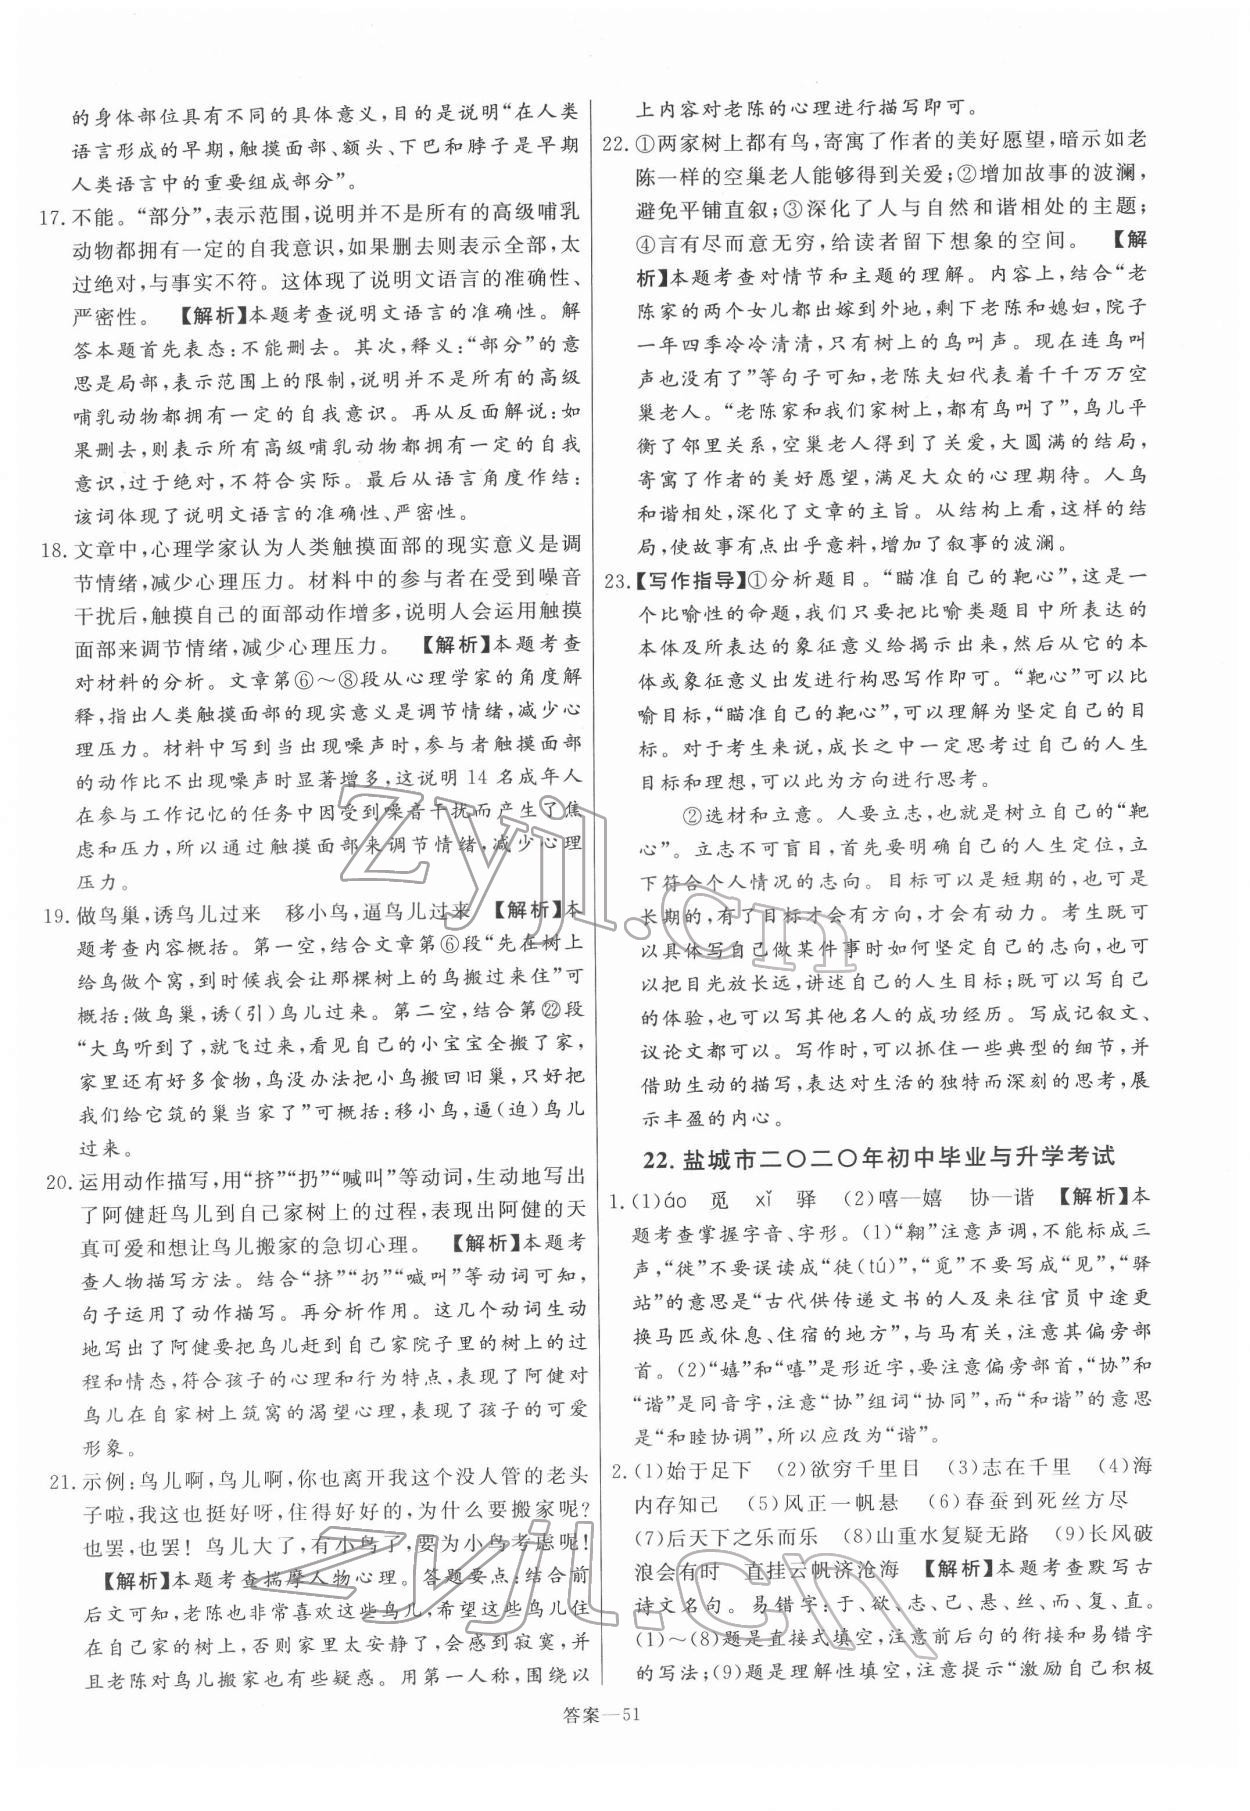 的身体部位具有不同的具体意义,目的是说明“在人类
语言形成的早期,触摸面部、额头、下巴和脖子是早期
人类语言中的重要组成部分”。
17. 不能。“部分”,表示范围,说明并不是所有的高级哺乳
动物都拥有一定的自我意识,如果删去则表示全部,太
过绝对,与事实不符。这体现了说明文语言的准确性、
严密性。 【解析】本题考查说明文语言的准确性。解
答本题首先表态:不能删去。其次,释义:“部分”的意
思是局部,表示范围上的限制,说明并不是所有的高级
哺乳动物都拥有一定的自我意识。再从反面解说:如
果删去,则表示所有高级哺乳动物都拥有一定的自我
意识,过于绝对,不符合实际。最后从语言角度作结:
该词体现了说明文语言的准确性、严密性。
18. 文章中,心理学家认为人类触摸面部的现实意义是调
节情绪,减少心理压力。材料中的参与者在受到噪音
干扰后,触摸自己的面部动作增多,说明人会运用触摸
面部来调节情绪,减少心理压力。 【解析】本题考查
对材料的分析。文章第⑥~⑧段从心理学家的角度解
释,指出人类触摸面部的现实意义是调节情绪,减少心
理压力。材料中写到当出现噪声时,参与者触摸面部
的动作比不出现噪声时显著增多,这说明 14 名成年人
在参与工作记忆的任务中因受到噪音干扰而产生了焦
虑和压力,所以通过触摸面部来调节情绪,减少心理
压力。
19. 做鸟巢,诱鸟儿过来 移小鸟,逼鸟儿过来 【解析】本
题考查内容概括。第一空,结合文章第⑥段“先在树上
给鸟做个窝,到时候我会让那棵树上的鸟搬过来住”可
概括:做鸟巢,诱(引)鸟儿过来。第二空,结合第㉒段
“大鸟听到了,就飞过来,看见自己的小宝宝全搬了家,
家里还有好多食物,鸟没办法把小鸟搬回旧巢,只好把
我们给它筑的巢当家了”可概括:移小鸟,逼(迫)鸟儿
过来。
20. 运用动作描写,用“挤”“扔”“喊叫”等动词,生动地写出
了阿健赶鸟儿到自己家树上的过程,表现出阿健的天
真可爱和想让鸟儿搬家的急切心理。 【解析】本题考
查人物描写方法。结合“挤”“扔”“喊叫”等动词可知,
句子运用了动作描写。再分析作用。这几个动词生动
地写出了阿健要把鸟儿赶到自己家院子里的树上的过
程和情态,符合孩子的心理和行为特点,表现了阿健对
鸟儿在自家树上筑窝的渴望心理,表现了孩子的可爱
形象。
21. 示例:鸟儿啊,鸟儿啊,你也离开我这个没人管的老头
子啦,我这也挺好呀,住得好好的,为什么要搬家呢?
也罢,也罢! 鸟儿大了,有小鸟了,要为小鸟考虑呢!
【解析】本题考查揣摩人物心理。答题要点:结合前
后文可知,老陈也非常喜欢这些鸟儿,希望这些鸟儿住
在自己家的树上,否则家里太安静了,会感到寂寞,并
且老陈对鸟儿搬家也有些疑惑。用第一人称,围绕以
上内容对老陈的心理进行描写即可。
22. ①两家树上都有鸟,寄寓了作者的美好愿望,暗示如老
陈一样的空巢老人能够得到关爱;②增加故事的波澜,
避免平铺直叙;③深化了人与自然和谐相处的主题;
④言有尽而意无穷,给读者留下想象的空间。 【解
析】本题考查对情节和主题的理解。内容上,结合“老
陈家的两个女儿都出嫁到外地,剩下老陈和媳妇,院子
一年四季冷冷清清,只有树上的鸟叫声。现在连鸟叫
声也没有了”等句子可知,老陈夫妇代表着千千万万空
巢老人。“老陈家和我们家树上,都有鸟叫了”,鸟儿平
衡了邻里关系,空巢老人得到了关爱,大圆满的结局,
寄寓了作者的美好愿望,满足大众的心理期待。人鸟
和谐相处,深化了文章的主旨。从结构上看,这样的结
局,使故事有点出乎意料,增加了叙事的波澜。
23. 【写作指导】①分析题目。“瞄准自己的靶心”,这是一
个比喻性的命题,我们只要把比喻类题目中所表达的
本体及所表达的象征意义给揭示出来,然后从它的本
体或象征意义出发进行构思写作即可。“靶心”可以比
喻目标,“瞄准自己的靶心”,可以理解为坚定自己的目
标。对于考生来说,成长之中一定思考过自己的人生
目标和理想,可以此为方向进行思考。
②选材和立意。人要立志,也就是树立自己的“靶
心”。立志不可盲目,首先要明确自己的人生定位,立
下符合个人情况的志向。目标可以是短期的,也可是
长期的,有了目标才会有方向,才会有动力。考生既可
以具体写自己做某件事时如何坚定自己的志向,也可
以把目光放长远,讲述自己的人生目标;既可以写自己
的体验,也可以写其他名人的成功经历。写成记叙文、
议论文都可以。写作时,可以抓住一些典型的细节,并
借助生动的描写,表达对生活的独特而深刻的思考,展
示丰盈的内心。
22. 盐城市二〇二〇年初中毕业与升学考试
1. (1)áo 觅 xǐ 驿 (2)嘻—嬉 协—谐 【解析】本
题考查掌握字音、字形。(1)“翱”注意声调,不能标成三
声,“徙”不要误读成“徒(tú)”,“觅”不要写成“见”,“驿
站”的意思是“古代供传递文书的人及来往官员中途更
换马匹或休息、住宿的地方”,与马有关,注意其偏旁部
首。(2)“嬉”和“嘻”是形近字,要注意偏旁部首,“协”和
“谐”是同音字,注意“协”组词“协同”,而“和谐”的意思
是“和睦协调”,所以应改为“谐”。
2. (1)始于足下 (2)欲穷千里目 (3)志在千里 (4)海
内存知己 (5)风正一帆悬 (6)春蚕到死丝方尽
(7)后天下之乐而乐 (8)山重水复疑无路 (9)长风破
浪会有时 直挂云帆济沧海 【解析】本题考查默写古
诗文名句。易错字:于、欲、志、己、悬、丝、而、复、直。
(1)~(8)题是直接式填空,注意前后句的衔接和易错字
的写法;(9)题是理解性填空,注意提示“激励自己积极
答案—51
zyjl.cn
zyjl.cn